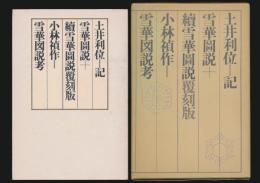 土井利位 記
雪華圖説+
續雪華圖説覆刻版
小林禎作—
雪華図説考
土井利位 記
雪華圖説+
續雪華圖説覆刻版
小林禎作—
雪華図説考